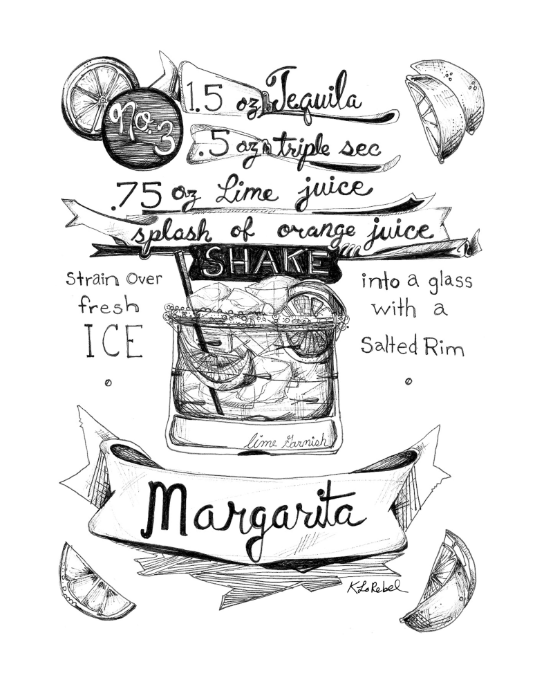 No. 3
1.5 oz Tequila
.5 oz triple sec
.75 oz Lime juice
splash of orange juice
SHAKE
Strain Over
fresh
ICE
into a glass
with a
Salted Rim
lime Garnish
Margarita
KLoRebel